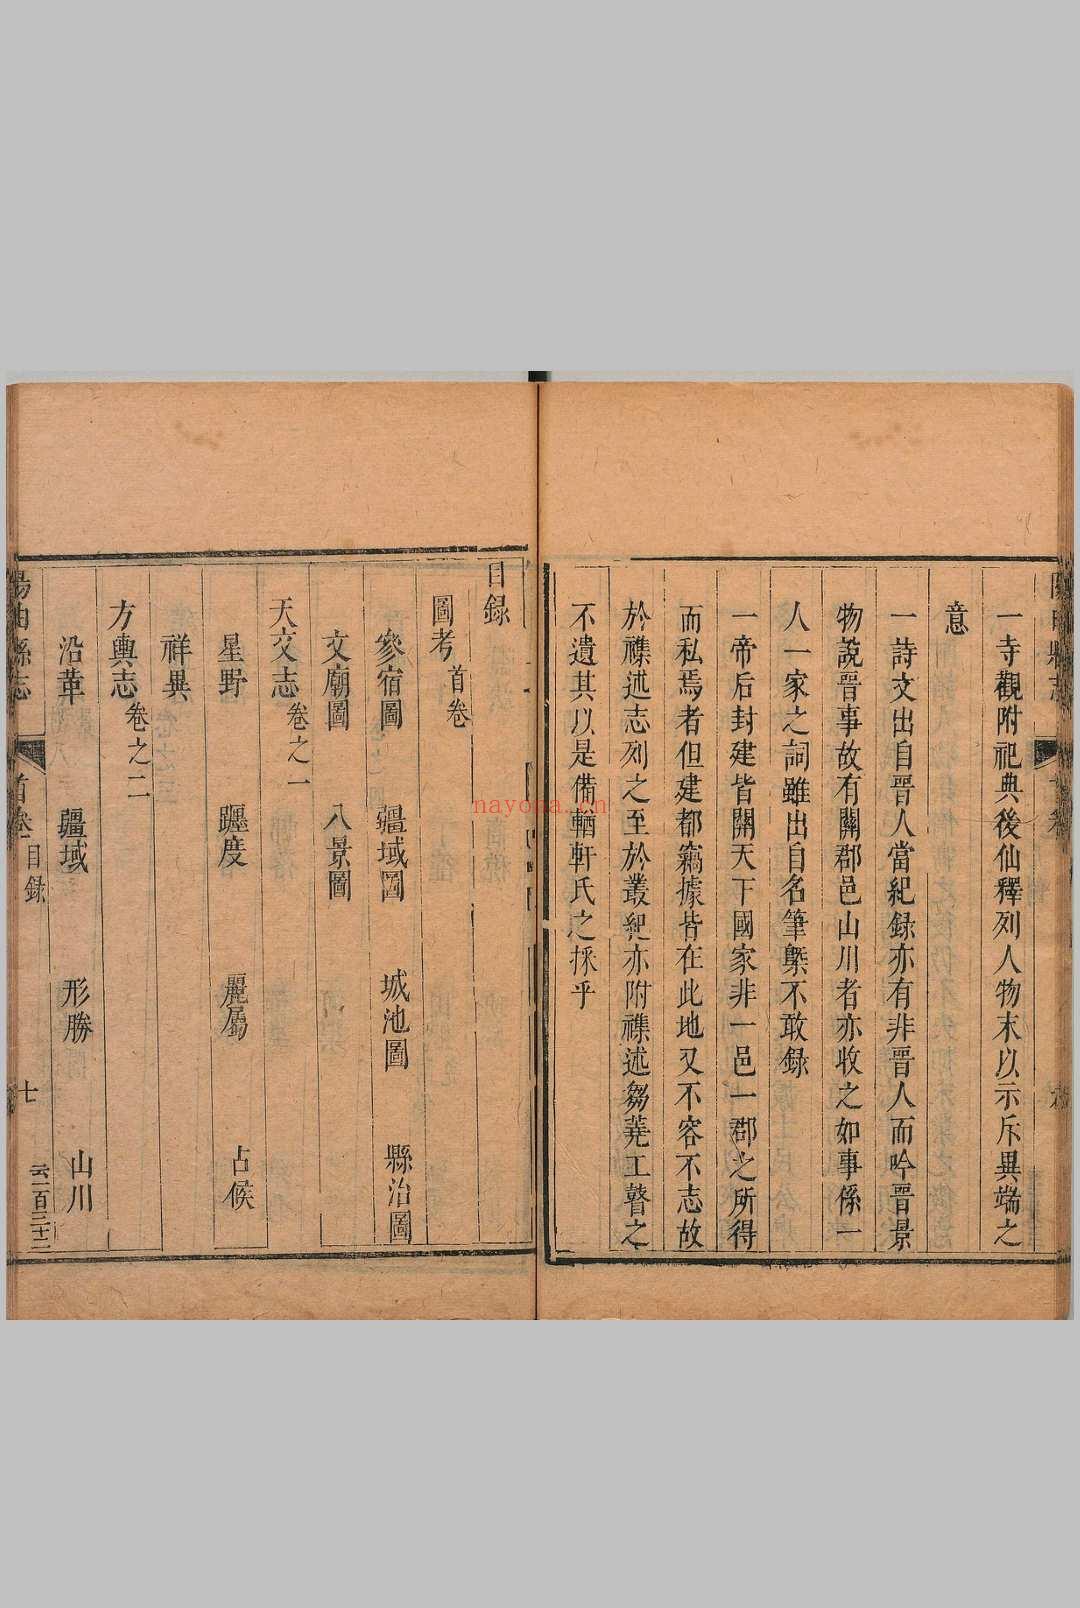 一寺觀附祀典後仙釋列人物末以示斥異端之
意
一詩文出自晉人當紀録亦有非晉人而吟晉景
物說晉事故有關郡邑山川者亦收之如事係一
人一家之詞雖出自名筆槩不敢録
一帝后封建皆關天下國家非一邑一郡之所得
而私焉者但建都竊據皆在此地又不容不志故
於襍述志列之至於叢紀亦附襍述芻蕘工瞽之
不遺其以是備輶軒氏之採乎
目録
圖考 首卷
參宿圖 疆域圖 城池圖 縣治圖
文廟圖 八景圖
天文志 卷之一
星野 躔度 麗屬 占候
祥異
方輿志 卷之二
沿革 疆域 形勝 山川
陽曲縣志 首卷 目録 七
nayona.cn